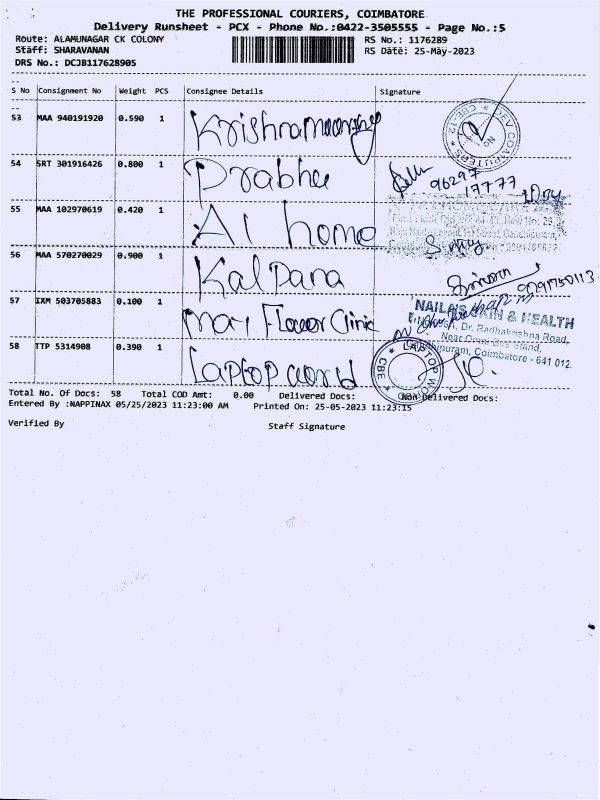 THE PROFESSIONAL COURIERS, COIMBATORE
Delivery Runsheet - PCX - Phone No.:0422-3505555 - Page No.:5
Route: ALAMUNAGAR CK COLONY
RS No.: 1176289
Staff: SHARAVANAN
RS Date: 25-May-2023
DRS No.: DCJB117628905
S No Consignment No Weight PCS Consignee Details Signature
53 MAA 940191920 0.590 1 Krishnamoorthy
COMPUTERS
CBE-12
54 SRT 301916426 0.800 1 Prabhu
96297
17777
55 MAA 102970619 0.420 1 A1 home
56 MAA 570270029 0.900 1 Kalpana
57 IXM 503705883 0.100 1 May Flower Clinic
NAILA'S SKIN & HEALTH
Dr. Radhakrishna Road,
Near Omni Bus Stand,
Coimbatore - 641 012.
58 TTP 5314908 0.390 1 Laptop world
LAPTOP WORLD
CBE
Total No. Of Docs: 58 Total COD Amt: 0.00 Delivered Docs: Non Delivered Docs:
Entered By :NAPPINAX 05/25/2023 11:23:00 AM Printed On: 25-05-2023 11:23:15
Verified By Staff Signature